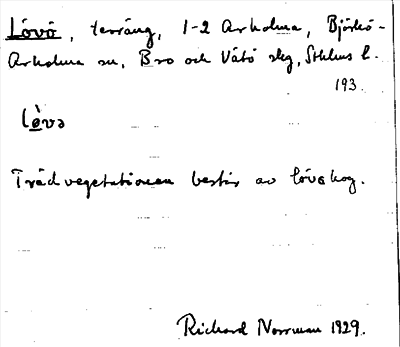 Lövö, terräng, 1-2 Arholma, Björkö-
Arholma sn, Bro och Vätö skg, Sthlms l.
193.
Lèvə
Trädvegetationen består av lövskog.
Richard Norrman 1929.